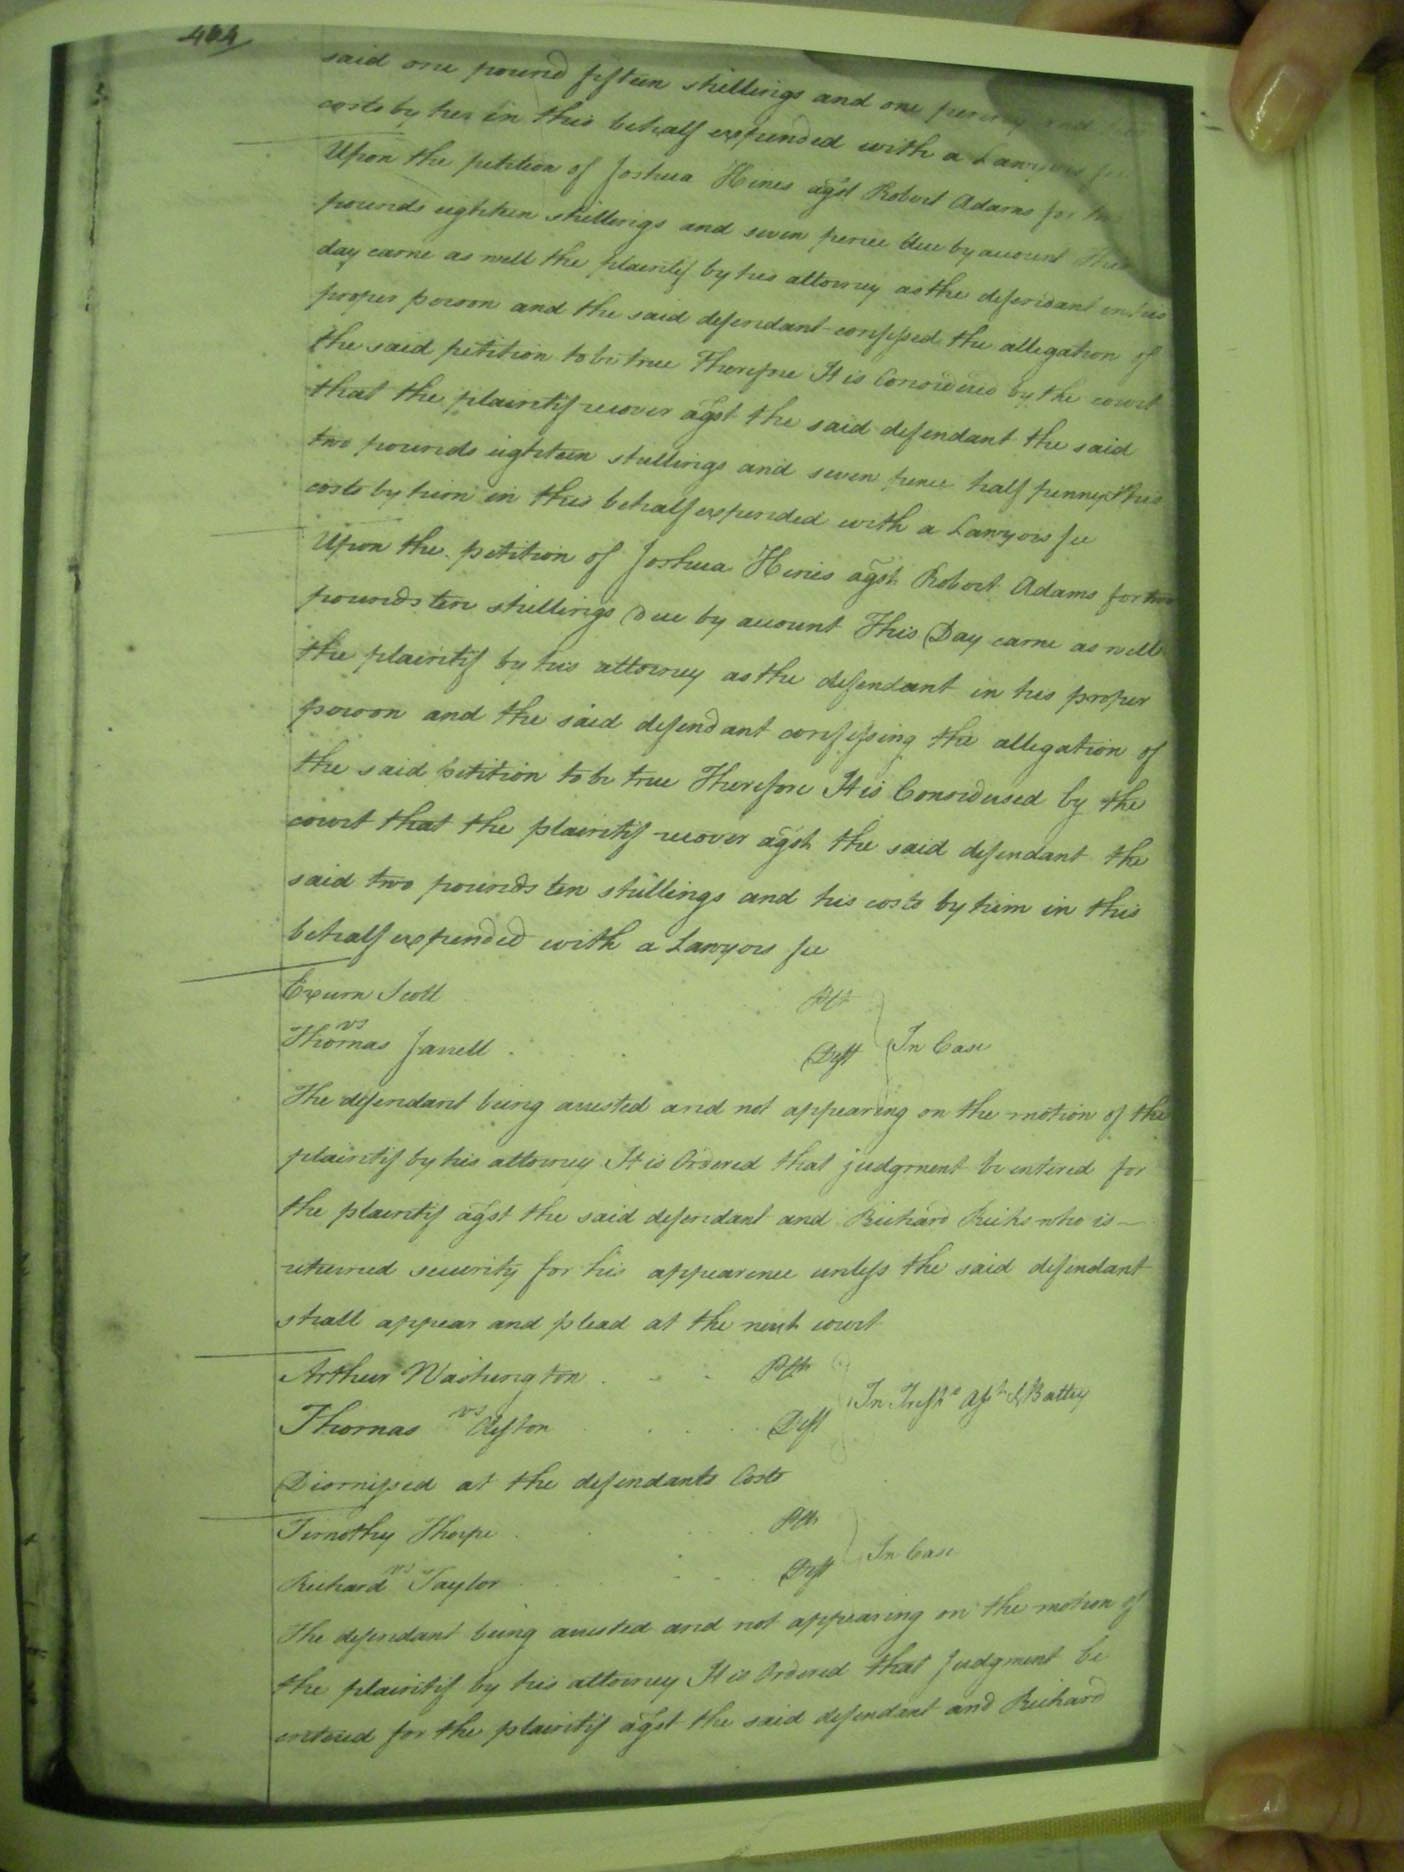 464
said one pound fifteen shillings and one penny and
costs by her in this behalf expended with a Lawyers fee
Upon the petition of Joshua Hines agst Robert Adams for two
pounds eighteen shillings and seven pence due by account This
day came as well the plaintif by his attorney as the defendant in his
proper person and the said defendant confessed the allegation of
the said petition to be true Therefore It is Considered by the court
that the plaintif recover agst the said defendant the said
two pounds eighteen shillings and seven pence half penny & his
costs by him in this behalf expended with a Lawyers fee
Upon the petition of Joshua Hines agst Robert Adams for two
pounds ten shillings due by account This Day came as well
the plaintif by his attorney as the defendant in his proper
person and the said defendant confessing the allegation of
the said petition to be true Therefore It is Considered by the
court that the plaintif recover agst the said defendant the
said two pounds ten shillings and his costs by him in this
behalf expended with a Lawyers fee
Exum Scott Plt
vs
Thomas Jarrell Deft In Case
The defendant being arrested and not appearing on the motion of the
plaintif by his attorney It is Ordered that judgment be entered for
the plaintif agst the said defendant and Richard Ricks who is
returned security for his appearence unless the said defendant
shall appear and plead at the next court
Arthur Washington Plt
vs In Tresps Aslt & Battey
Thomas Clifton Deft
Dismissed at the defendants Costs
Timothy Thorpe Plt
vs In Case
Richard Taylor Deft
The defendant being arrested and not appearing on the motion of
the plaintif by his attorney It is Ordered that Judgment be
entered for the plaintif agst the said defendant and Richard